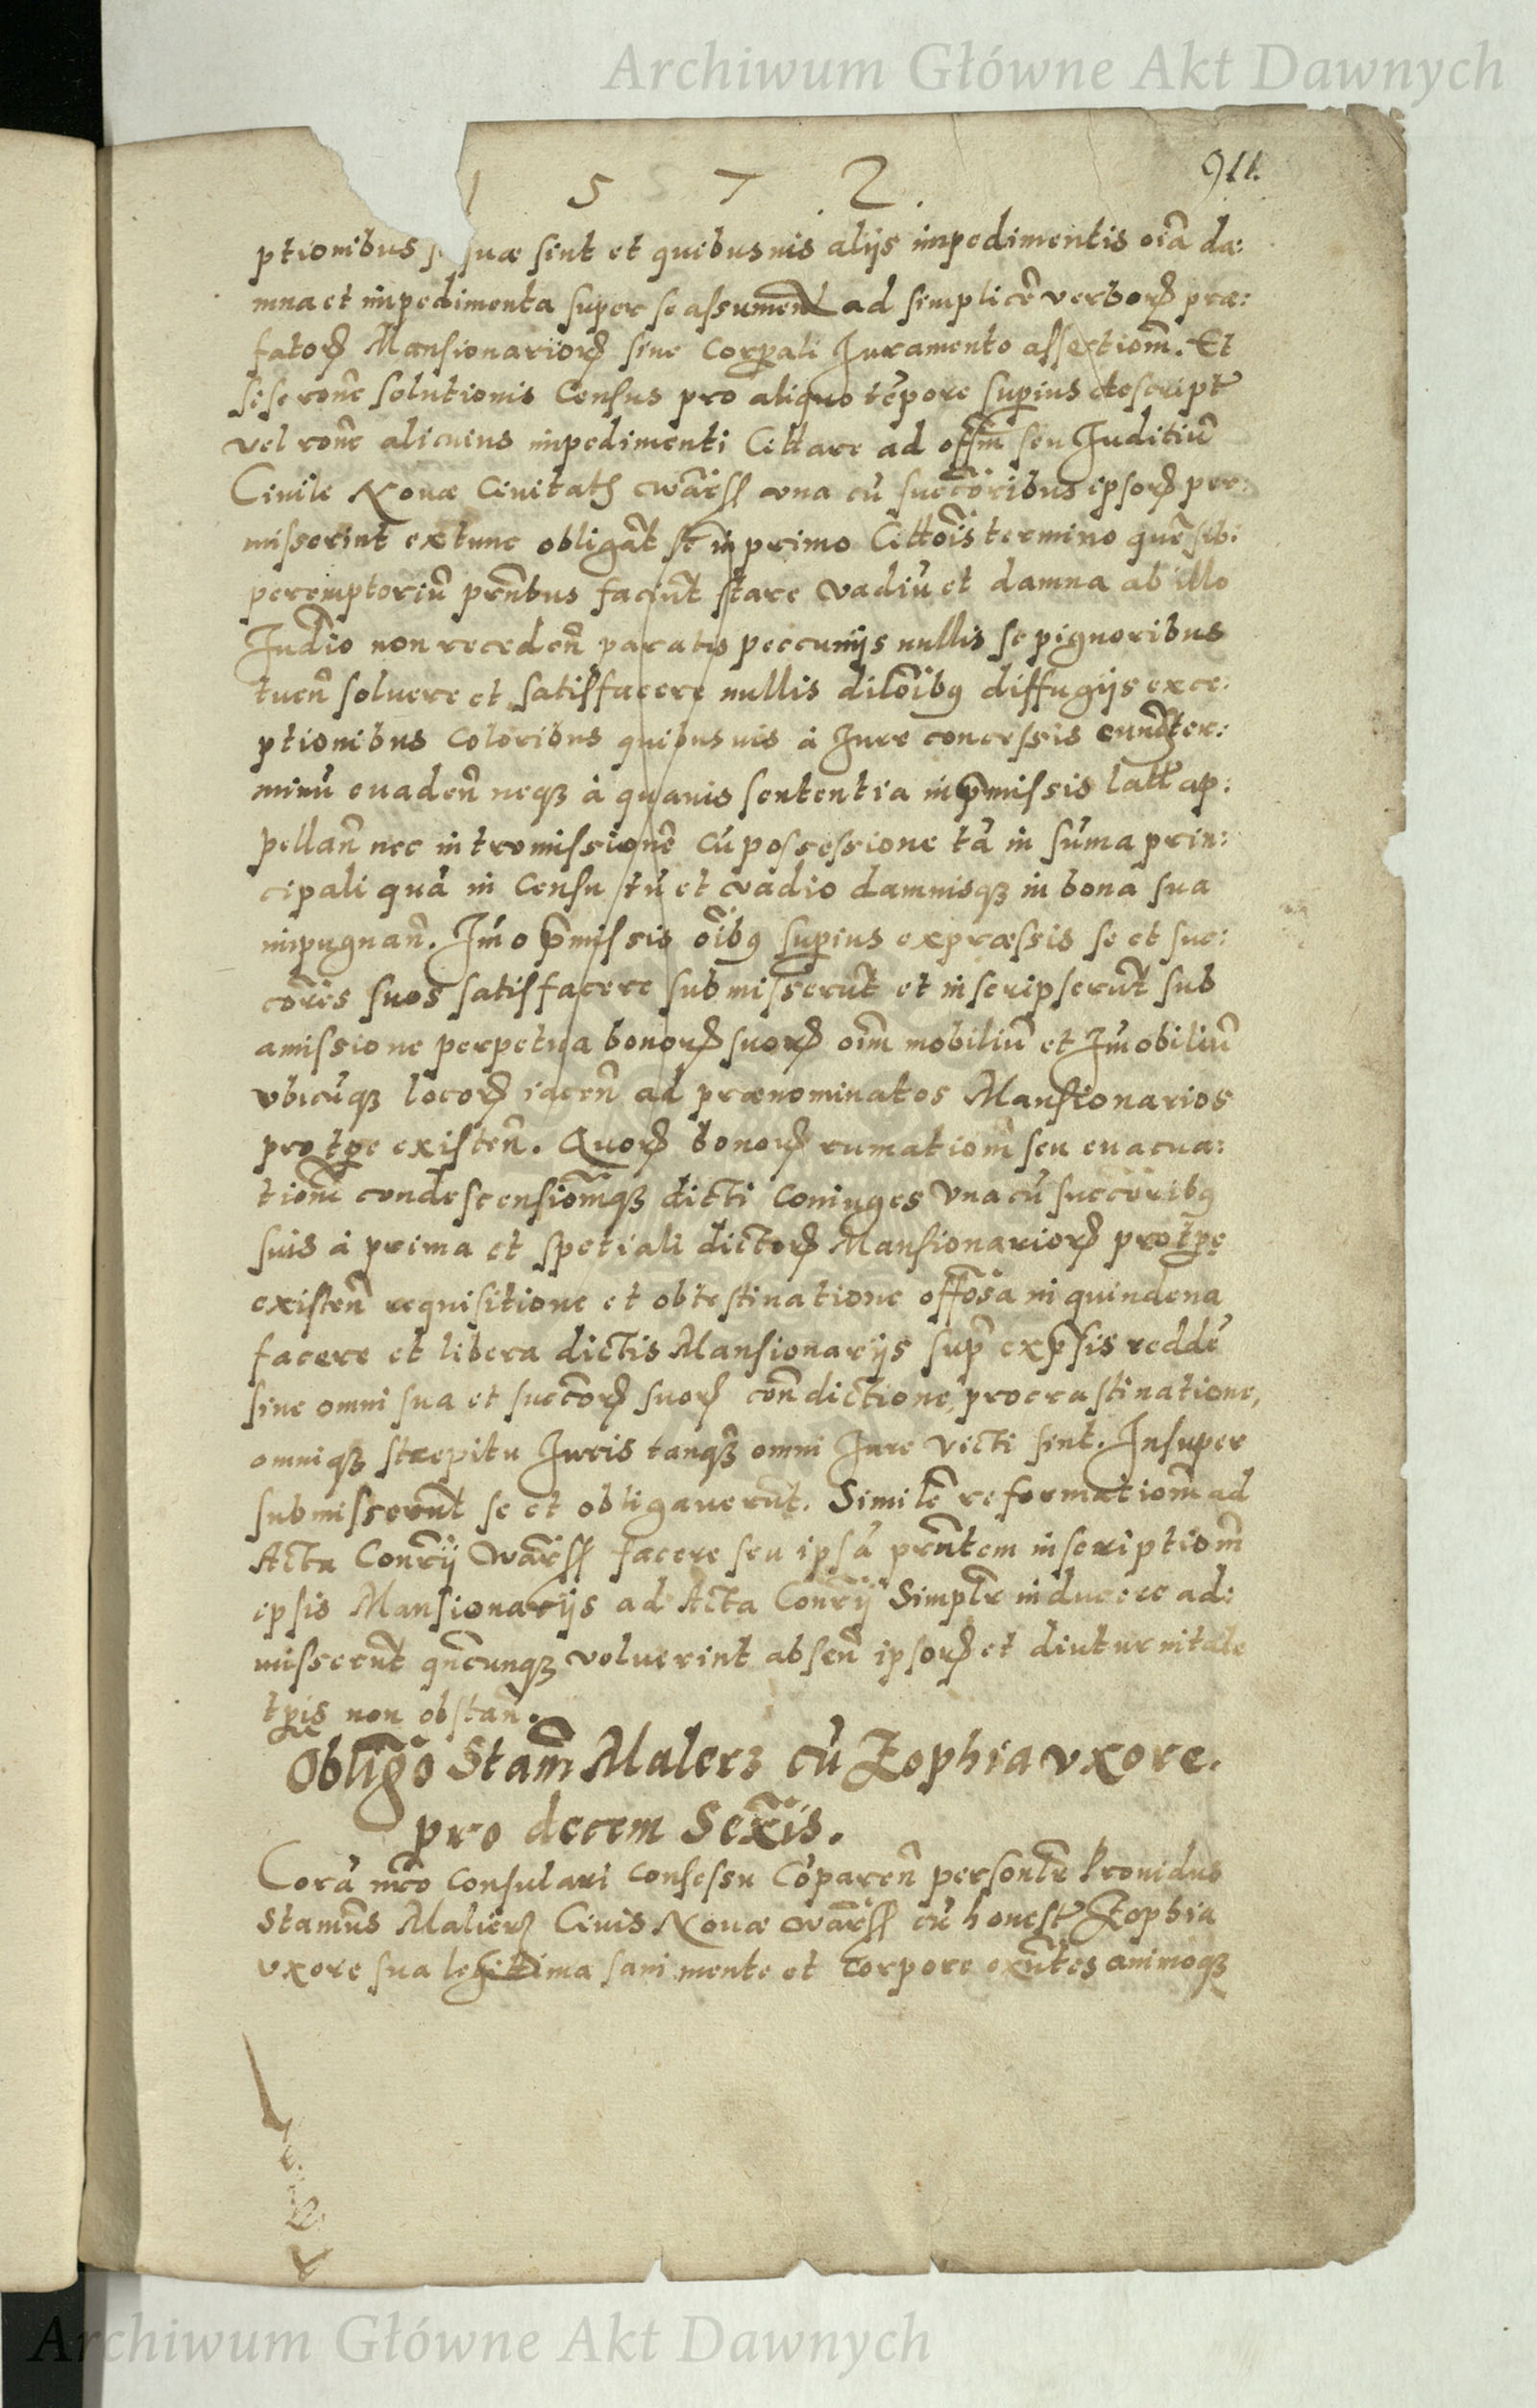 Archiwum Główne Akt Dawnych
1 5 7 2.
911.
ptionibus suæ sint et quibusuis alijs impedimentis oia̅ da:
mna et impedimenta super se assumen̅ ad simplice̅ verborꝝ præ:
fatorꝝ Mansionariorꝝ sine Corꝑali Juramento assertiom̅. Et
si se rone̅ solutionis Census pro aliquo te̅pore suꝑius descript̅
vel rone̅ alicuius impedimenti Cittare ad offm̅ seu Juditiu̅
Ciuile Nouæ Ciuitatꝭ Wars̅ß vna cu̅ succo̅ribus ipsorꝝ per:
misserint extunc obliga̅t se in primo Citto̅is termino que̅ sibi
peremptoriu̅ prn̅bus faciu̅t stare vadiu̅ et damna ab illo
Judi̅o non receden̅ paratis peccunijs nullis se pignoribus
tuen̅ soluere et satisfacere nullis dilo̅ibꝰ diffugijs exce:
ptionibus Coloribus quibusuis à Jure concessis eund̅ ter:
minu̅ euaden̅ neqꝫ à quauis sententia in p̅missis latt̅ ap:
pellan̅ nec intromissione̅ cu̅ possessione ta̅ in su̅ma prin:
cipali qua̅ in Censu tu̅ et vadio damnisqꝫ in bona sua
impugnan̅. Im̅o p̅missis o̅ibꝰ suꝑius expræssis se et suc:
co̅res suos satisfacere submisseru̅t et inscripseru̅t sub
amissione perpetua bonorꝝ suorꝝ oim̅ mobiliu̅ et Im̅obiliu̅
vbicu̅qꝫ locorꝝ iacen̅ ad prænominatos Mansionarios
pro tꝑe existen̅. Quorꝝ bonorꝝ rumatiom̅ seu euacua:
tiom̅ condescensiom̅qꝫ dicti Coniuges vna cu̅ succo̅ribꝰ
suis à prima et spetiali dictorꝝ Mansionariorꝝ pro tꝑe
existen̅ requisitione et obtestinatione offo̅sa in quindena
facere et libera dictis Mansionarijs sup̅ exp̅sis redde̅
sine omni sua et succo̅rꝝ suorꝝ con̅dictione, procrastinatione,
omniqꝫ strepitu Juris tanqꝫ omni Jure victi sint. Insuper
submisseru̅t se et obligaueru̅t. Simile̅ reformatiom̅ ad
Acta Con̅rij Wars̅ß facere seu ipsa̅ prn̅tem inscriptiom̅
ipsis Mansionarijs ad Acta Con̅rij Simplr̅ inducere ad:
misseru̅t qn̅cunqꝫ voluerint absen̅ ipsorꝝ et diuturnitate
tꝑis non obstan̅.
Oblig̅o Stam̅ Malerz cu̅ Zophia vxore.
pro decem Sex̅is.
Cora̅ nr̅o Consulari Consessu Co̅paren̅ personlr̅ Prouidus
Stamu̅s Malierz Ciuis Nouæ Wars̅ß cu̅ honest̅ Zophia
vxore sua legittima sani mente et Corpore exn̅tes animoqꝫ
Archiwum Główne Akt Dawnych